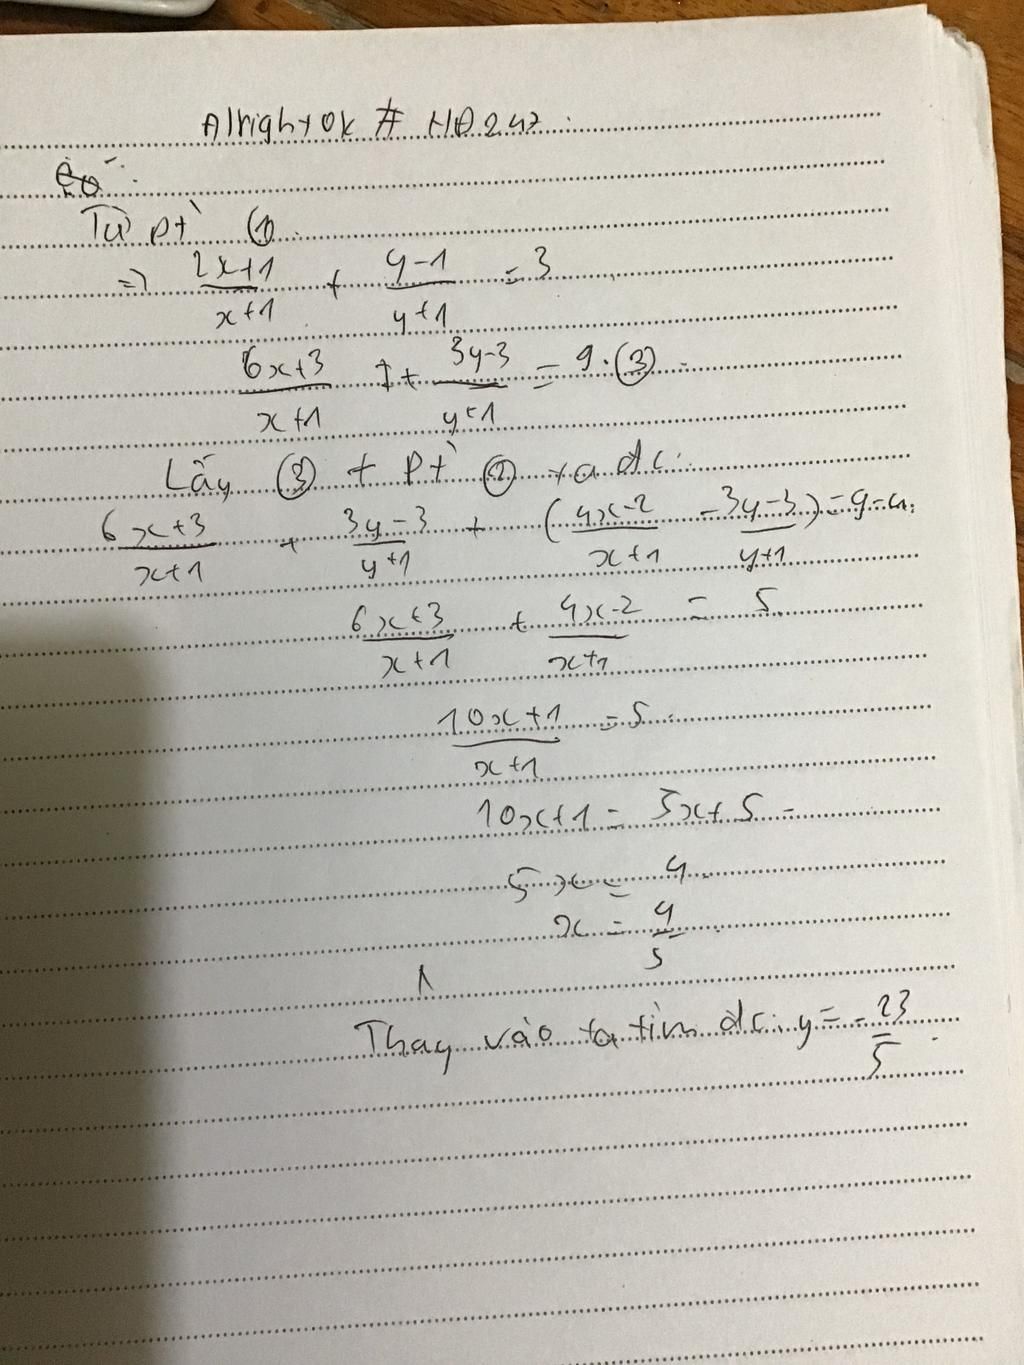 Alrightok # HD247
Từ pt ①
=> 2x+1/x+1 + y-1/y+1 = 3
6x+3/x+1 + 3y-3/y+1 = 9. ③
Lấy ③ + pt ② ta dc:
6x+3/x+1 + 3y-3/y+1 + (4x-2/x+1 - 3y-3/y+1) = 9-4.
6x+3/x+1 + 4x-2/x+1 = 5.
10x+1/x+1 = 5.
10x+1 = 5x+5
5x = 4.
x = 4/5
Thay vào ta tìm dc. y = -23/5.